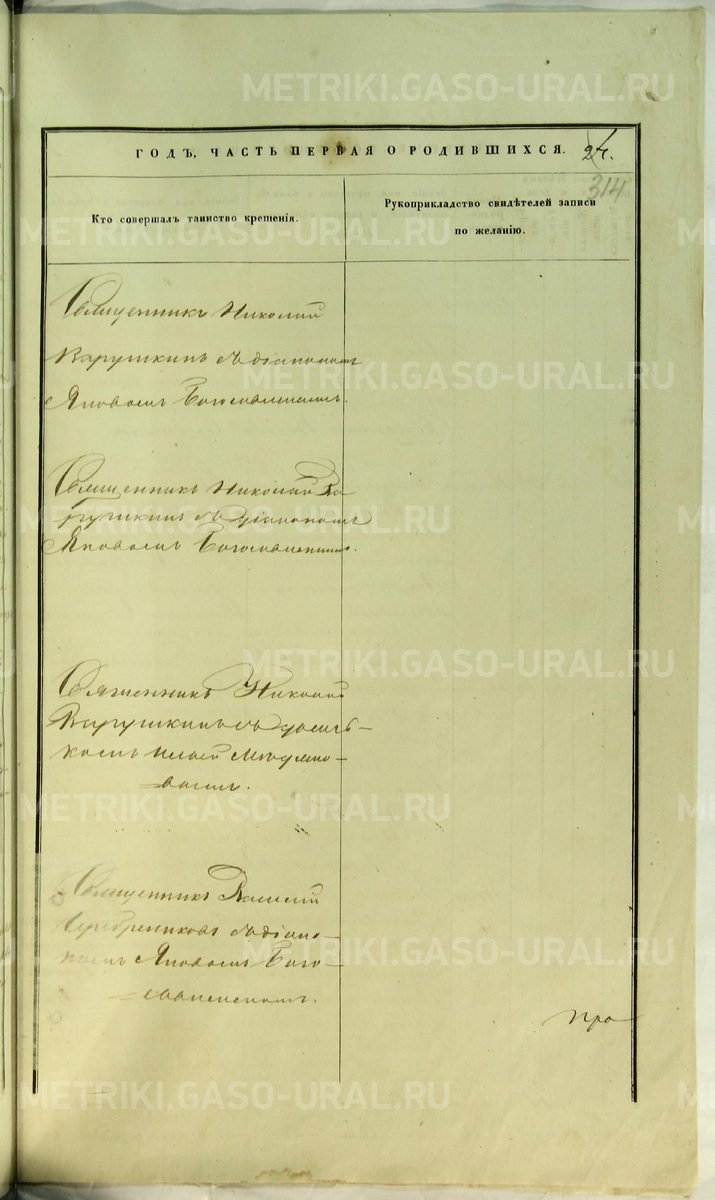 METRIKI.GASO-URAL.RU
ГОДЪ, ЧАСТЬ ПЕРВАЯ О РОДИВШИХСЯ.
314
Кто совершалъ таинство крещенія.
Рукоприкладство свидѣтелей записи
по желанію.
Священникъ Николай
Варушкинъ съ діакономъ
Яковомъ Богоявленскимъ.
Священникъ Николай Ва
рушкинъ съ діакономъ
Яковомъ Богоявленскимъ.
Священникъ Николай
Варушкинъ съ дьяч-
комъ
Священникъ Василій
Серебрениковъ съ діако-
номъ Яковомъ Бого-
явленскимъ.
Про
METRIKI.GASO-URAL.RU
METRIKI.GASO-URAL.RU
METRIKI.GASO-URAL.RU
METRIKI.GASO-URAL.RU
METRIKI.GASO-URAL.RU
METRIKI.GASO-URAL.RU